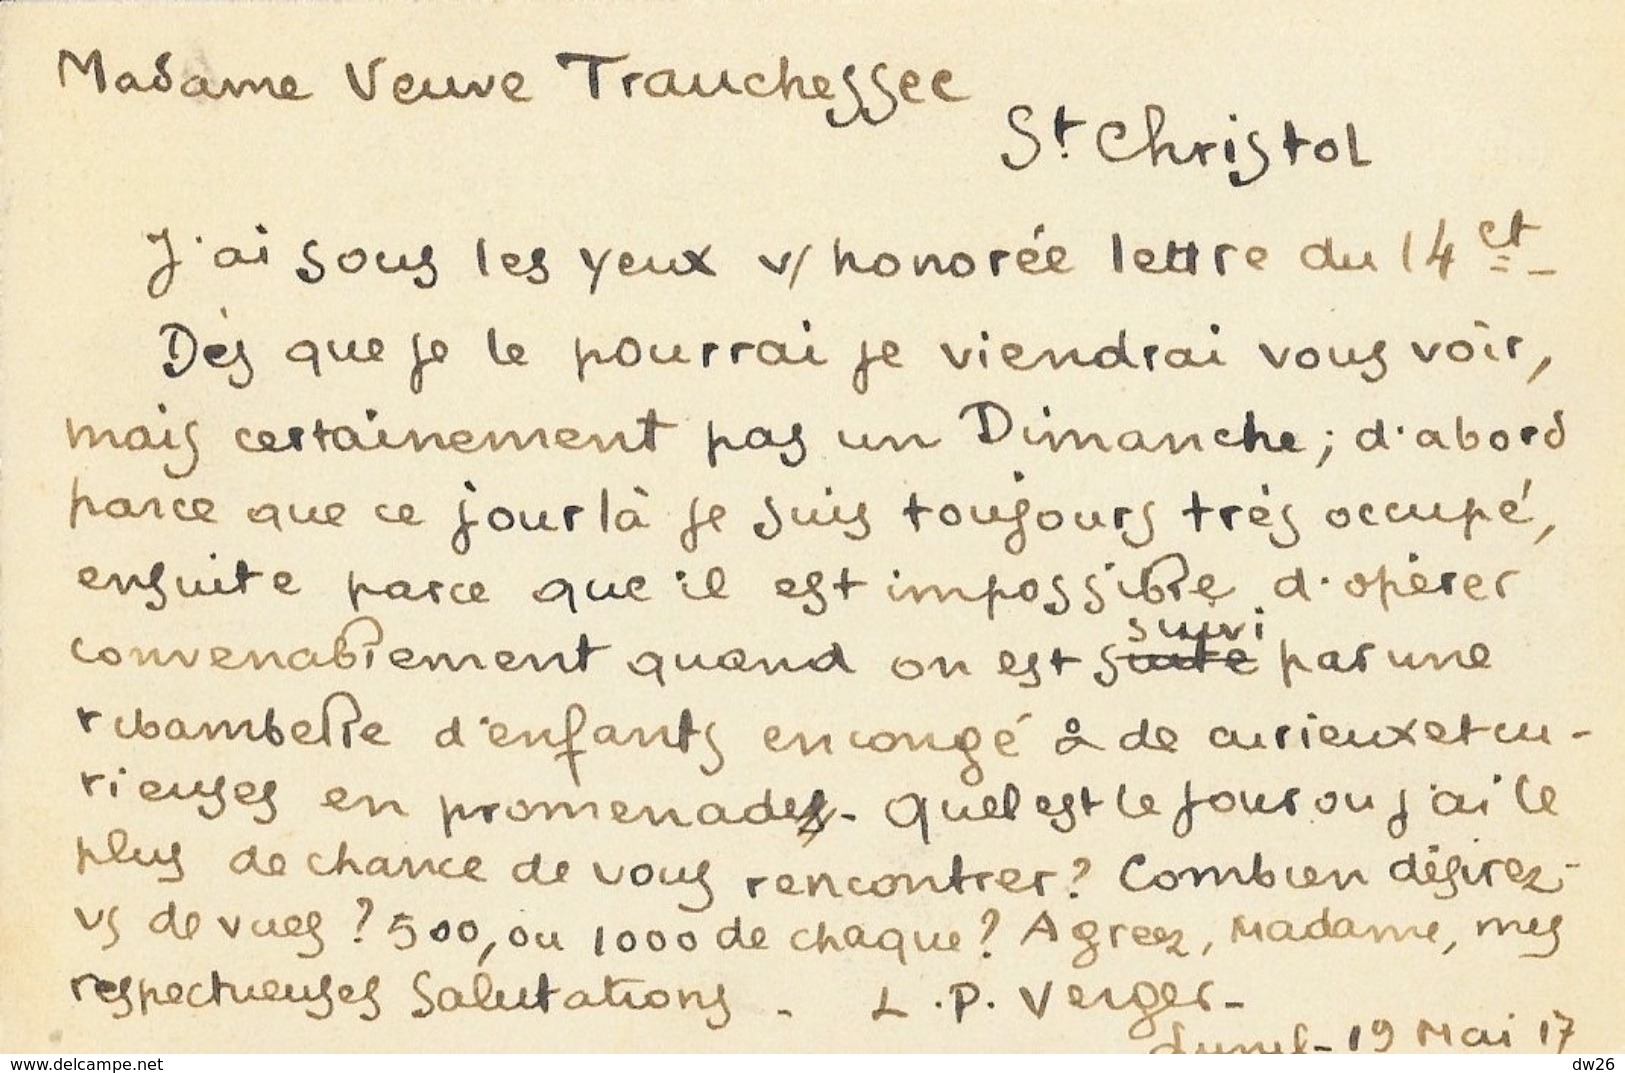 Madame Veuve Trauchessec
St. Christol
J'ai sous les yeux v/ honorée lettre du 14 ct -
Dès que je le pourrai je viendrai vous voir,
mais certainement pas un Dimanche ; d'abord
parce que ce jour là je suis toujours très occupé,
ensuite parce que il est impossible d'opérer
suivi
convenablement quand on est suite par une
ribambelle d'enfants en congé & de curieux et cu-
rieuses en promenades - Quel est le jour ou j'ai le
plus de chance de vous rencontrer ? Combien désirez-
vs de vues ? 500, ou 1000 de chaque ? Agréez, Madame, mes
respectueuses Salutations - L. P. Verger -
Lunel - 19 Mai 17
www.delcampe.net
dw26